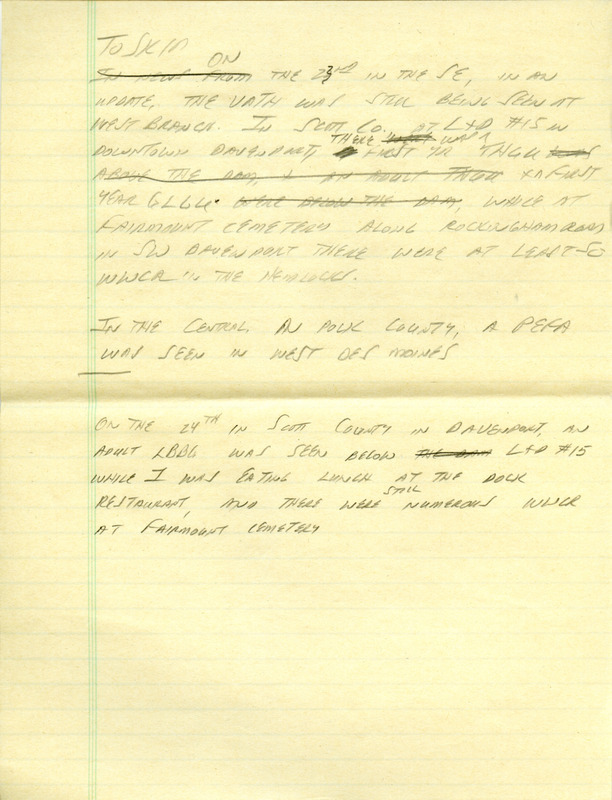 TO SKIM
ON
IN NEWS FROM THE 23RD IN THE SE, IN AN
UPDATE, THE VATH WAS STILL BEING SEEN AT
WEST BRANCH. IN SCOTT CO. AT L+D #15 IN
THERE WAS A
DOWNTOWN DAVENPORT, FIRST YR THGU WAS
ABOVE THE DAM, + AN ADULT THGU + A FIRST
YEAR GLGU. WERE BELOW THE DAM, WHILE AT
FAIRMOUNT CEMETERY ALONG ROCKINGHAM ROAD
IN SW DAVENPORT THERE WERE AT LEAST 50
WWCR IN THE HEMLOCKS.
IN THE CENTRAL IN POLK COUNTY, A PEFA
WAS SEEN IN WEST DES MOINES
ON THE 24TH IN SCOTT COUNTY IN DAVENPORT, AN
ADULT LBBG WAS SEEN BELOW THE DAM L+D #15
WHILE I WAS EATING LUNCH AT THE DOCK
STILL
RESTAURANT, AND THERE WERE NUMEROUS WWCR
AT FAIRMOUNT CEMETERY